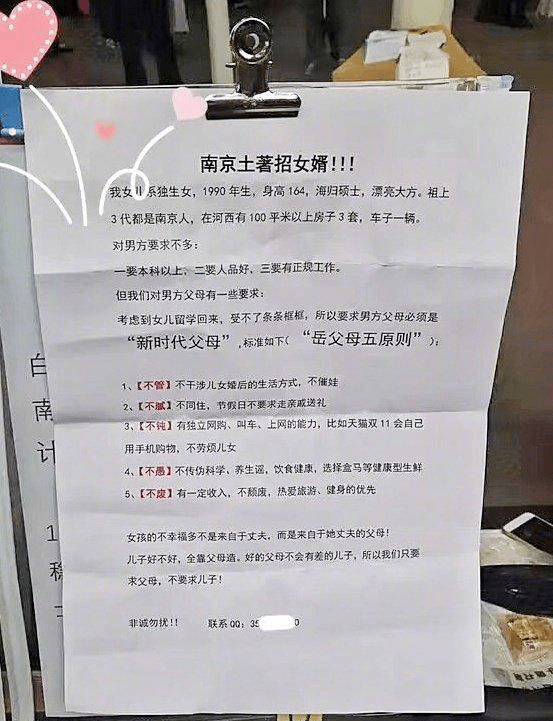 南京土著招女婿!!!
我女儿系独生女，1990年生，身高164，海归硕士，漂亮大方。祖上
3代都是南京人，在河西有100平米以上房子3套，车子一辆。
对男方要求不多：
一要本科以上，二要人品好，三要有正规工作。
但我们对男方父母有一些要求：
考虑到女儿留学回来，受不了条条框框，所以要求男方父母必须是
“新时代父母”,标准如下(“岳父母五原则”)：
1、【不管】不干涉儿女婚后的生活方式，不催娃
2、【不腻】不同住，节假日不要求走亲戚送礼
3、【不钝】有独立网购、叫车、上网的能力，比如天猫双11会自己
用手机购物，不劳烦儿女
4、【不愚】不传伪科学、养生谣，饮食健康，选择盒马等健康型生鲜
5、【不废】有一定收入，不颓废，热爱旅游、健身的优先
女孩的不幸福多不是来自于丈夫，而是来自于她丈夫的父母!
儿子好不好，全靠父母造。好的父母不会有差的儿子，所以我们只要
求父母，不要求儿子!
非诚勿扰!! 联系QQ：35 0
白
南
计
1